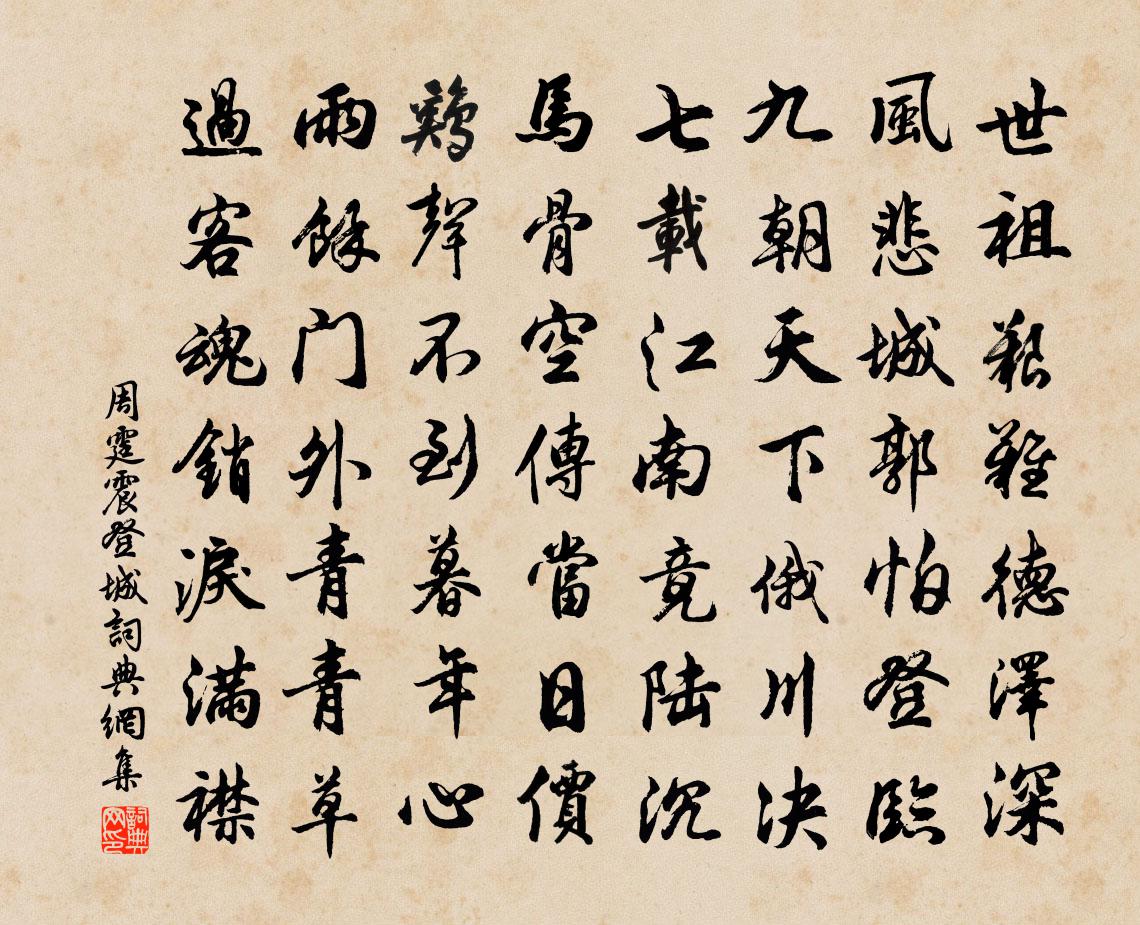 世祖艱難德澤深
風悲城郭怕登臨
九朝天下俄川決
七載江南竟陸沉
馬骨空傳當日價
鷄聲不到暮年心
雨餘門外青青草
過客魂銷淚滿襟
周霆震登城詞典網集
詞典网印